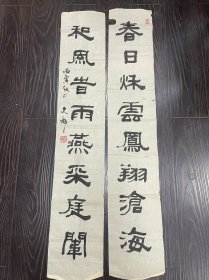 春日秌雲鳳翔滄海
和風甘雨燕采庭闈